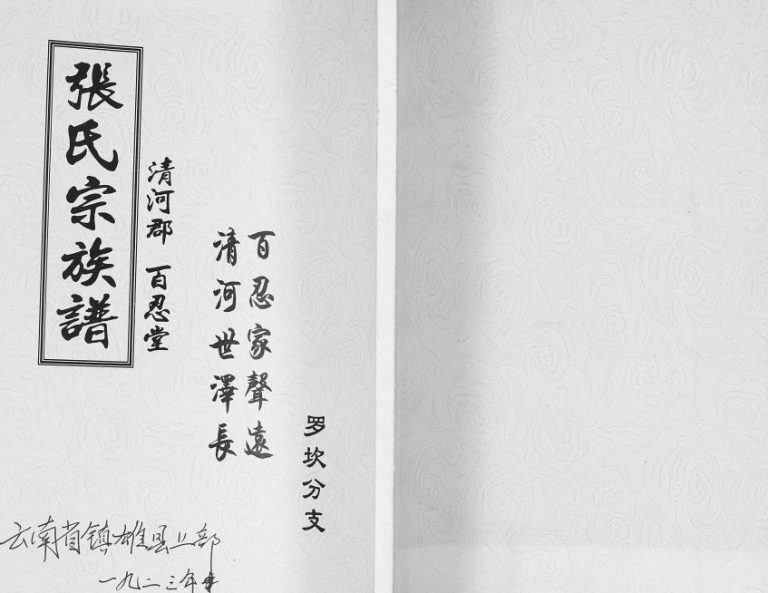 張氏宗族譜
清河郡 百忍堂
百忍家聲遠
清河世澤長
罗坎分支
云南省镇雄县上部
一九二三年